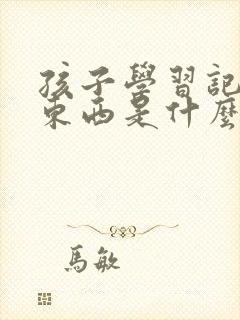 孩子學習記
東西是什麼
馬敏